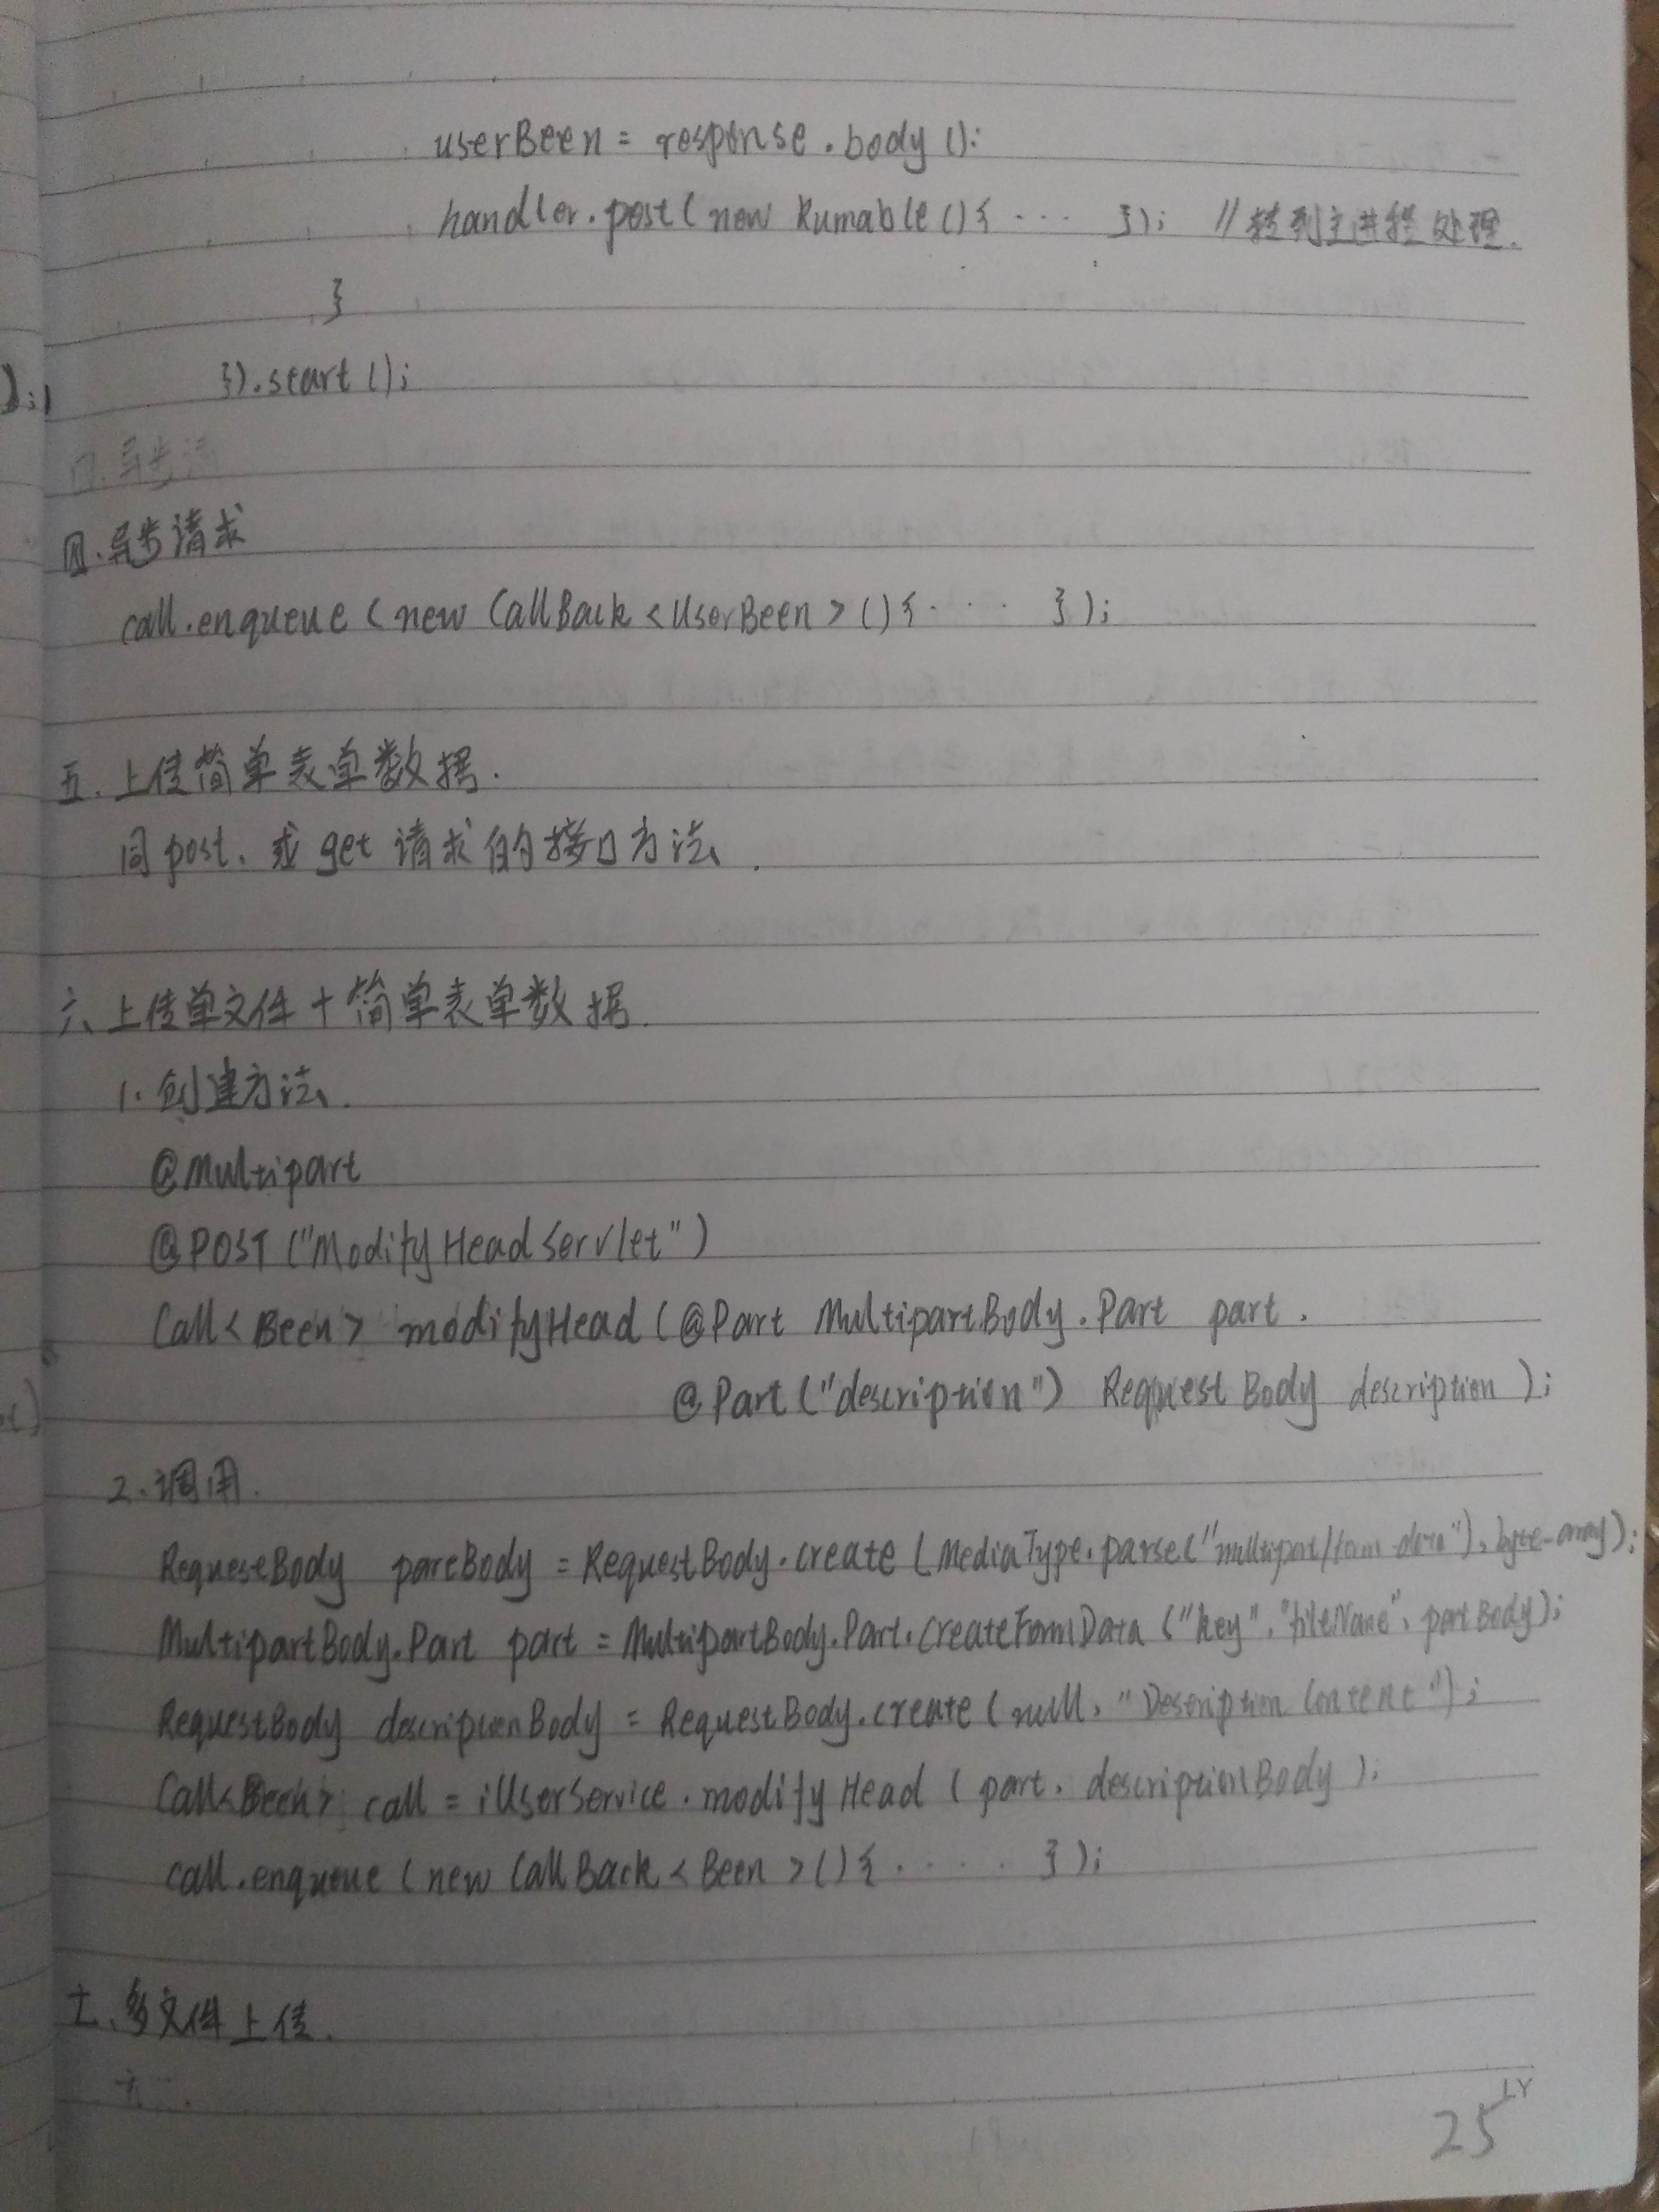 userBeen = response.body ();
handler.post( new Runnable (){ ···· }); //转到主进程处理.
}
}).start ();
);
四.异步请
四.异步请求
call.enqueue ( new CallBack < UserBeen > (){ ···· });
五.上传简单表单数据.
同post.或get请求的接口方法.
六、上传单文件+简单表单数据.
1.创建方法.
@Multipart
@POST ("ModifyHeadServlet")
Call< Been > modifyHead ( @Part MultipartBody.Part part,
@Part ("description") RequestBody description );
2.调用.
RequestBody partBody = RequestBody.create ( MediaType.parse("multipart/form-data"), byte-array);
MultipartBody.Part part = MultipartBody.Part.createFormData ("key", "fileName", partBody);
RequestBody descriptionBody = RequestBody.create ( null, "Description Content");
Call<Been> call = iUserService.modifyHead ( part, descriptionBody );
call.enqueue ( new CallBack < Been > (){ ····· });
七、多文件上传.
LY
25